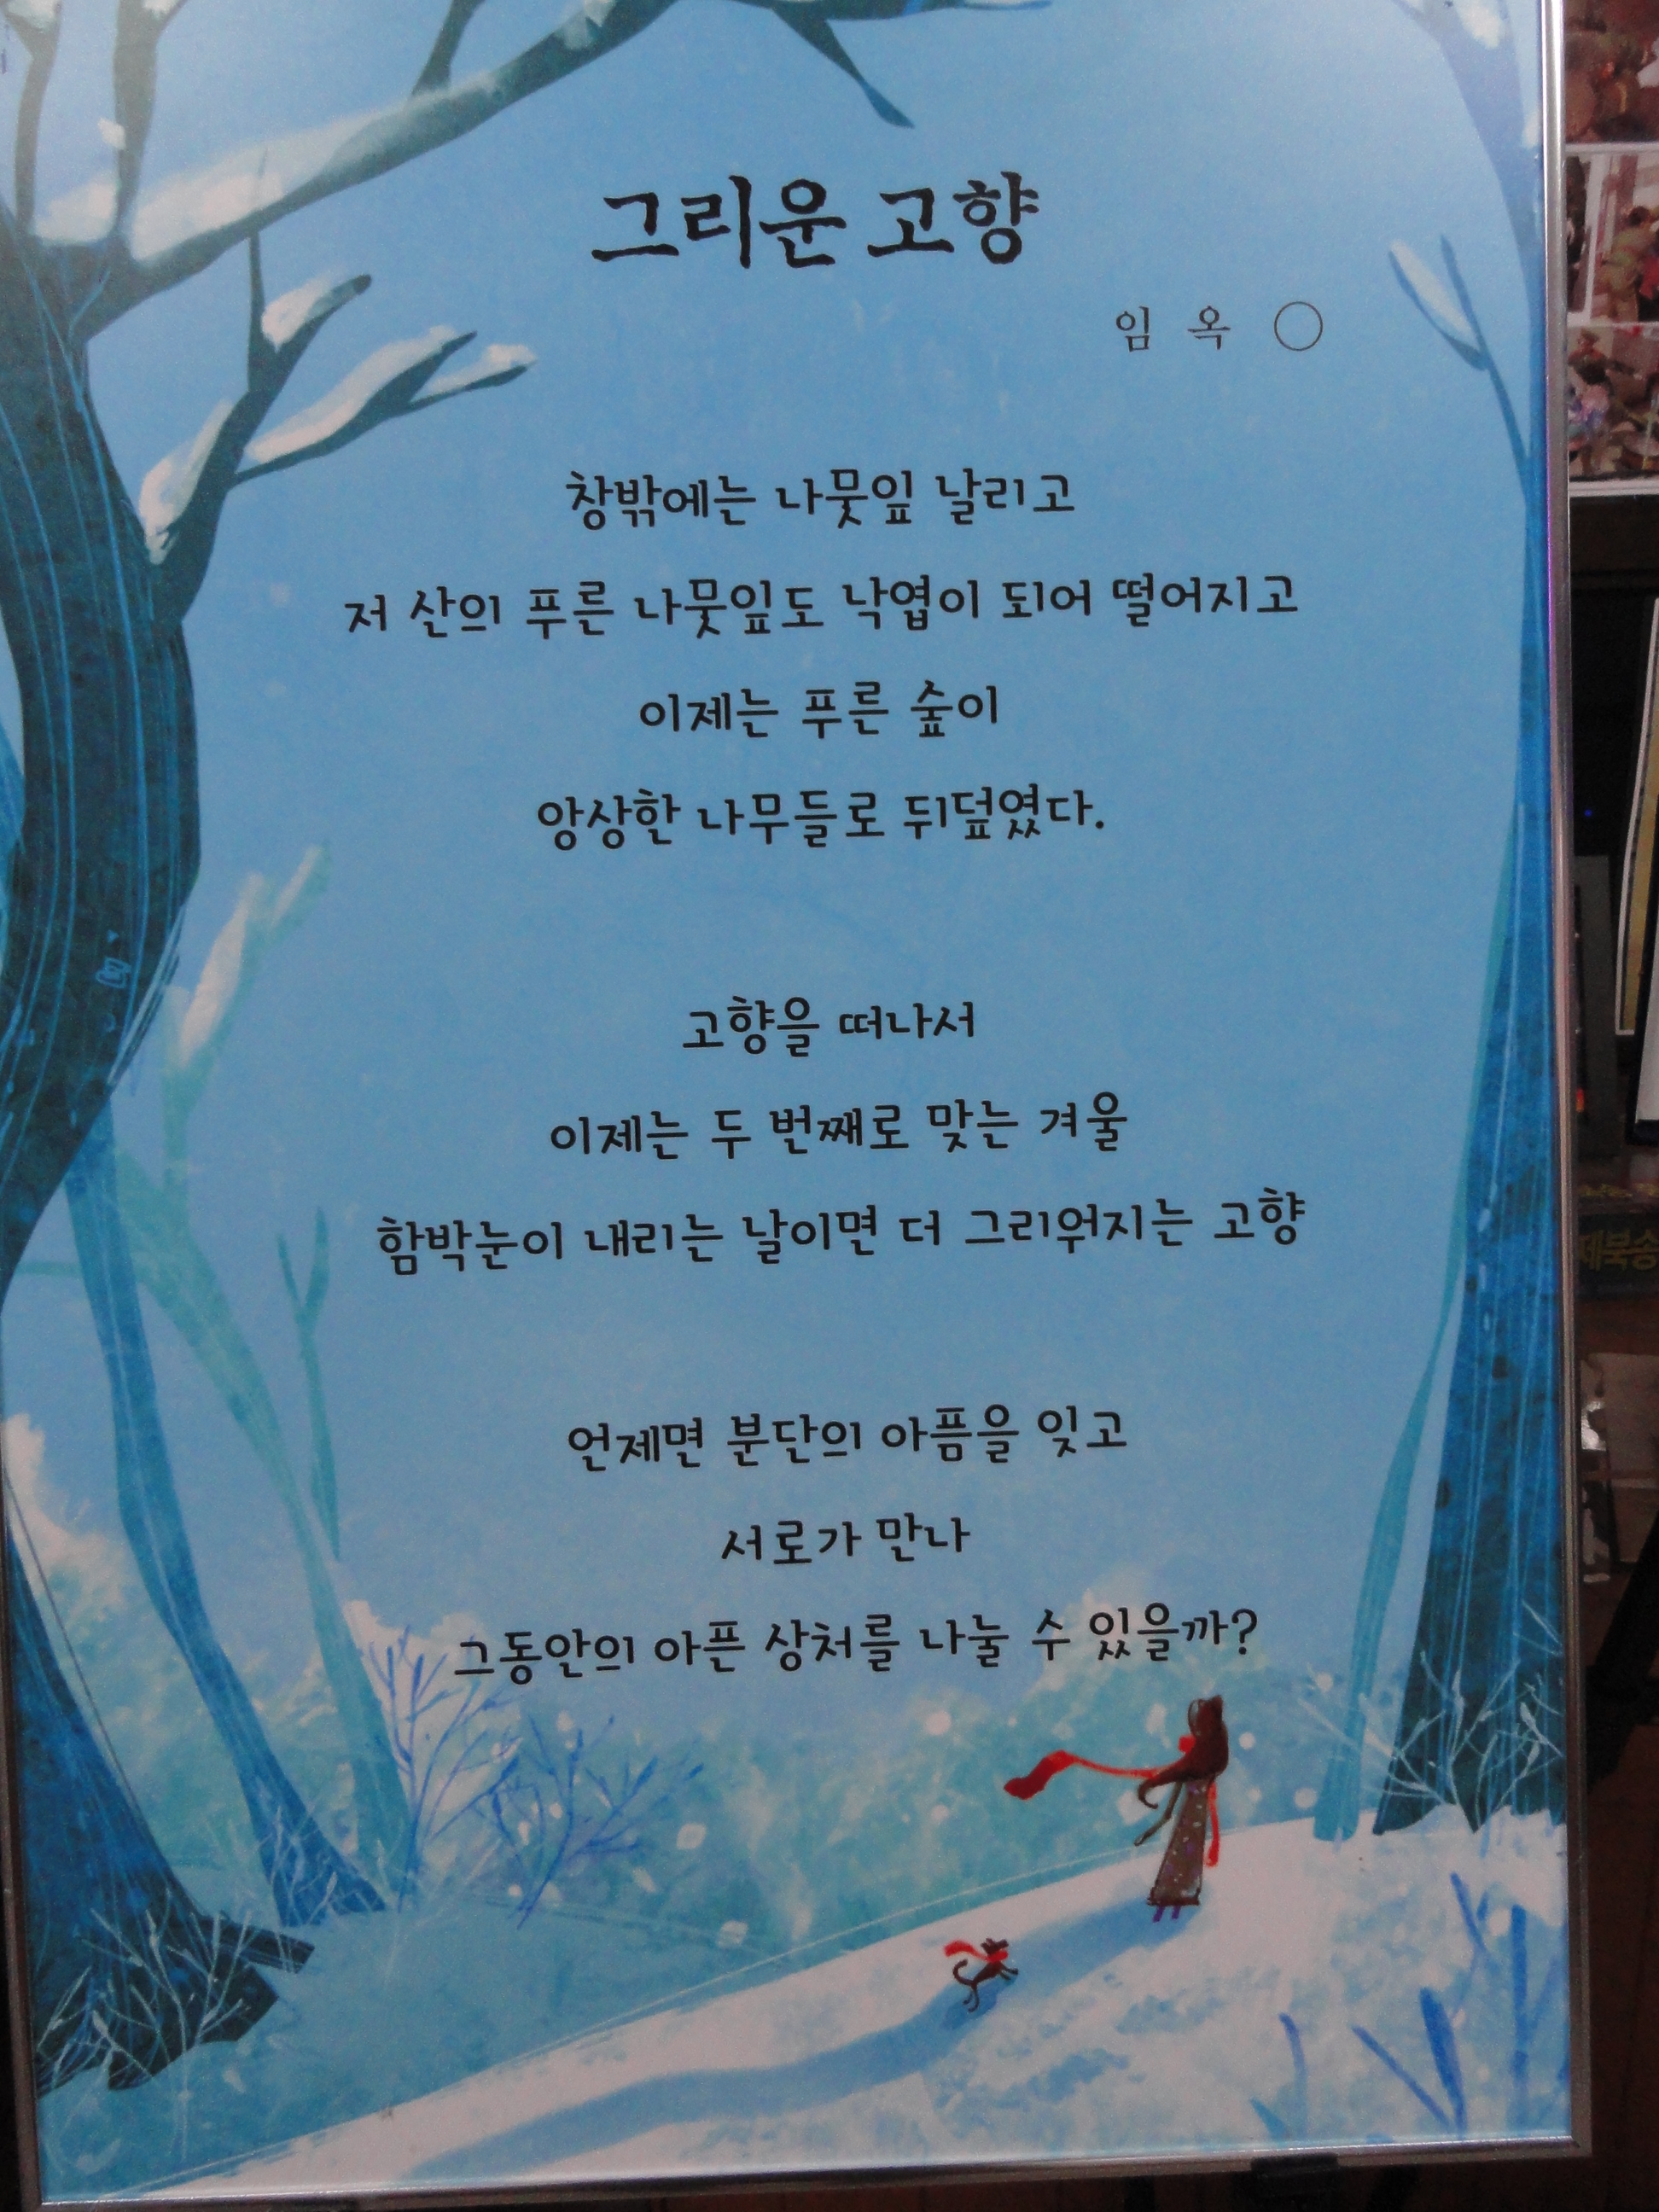 그리운 고향
임 옥 ○
창밖에는 나뭇잎 날리고
저 산의 푸른 나뭇잎도 낙엽이 되어 떨어지고
이제는 푸른 숲이
앙상한 나무들로 뒤덮였다.
고향을 떠나서
이제는 두 번째로 맞는 겨울
함박눈이 내리는 날이면 더 그리워지는 고향
언제면 분단의 아픔을 잊고
서로가 만나
그동안의 아픈 상처를 나눌 수 있을까?
제북송